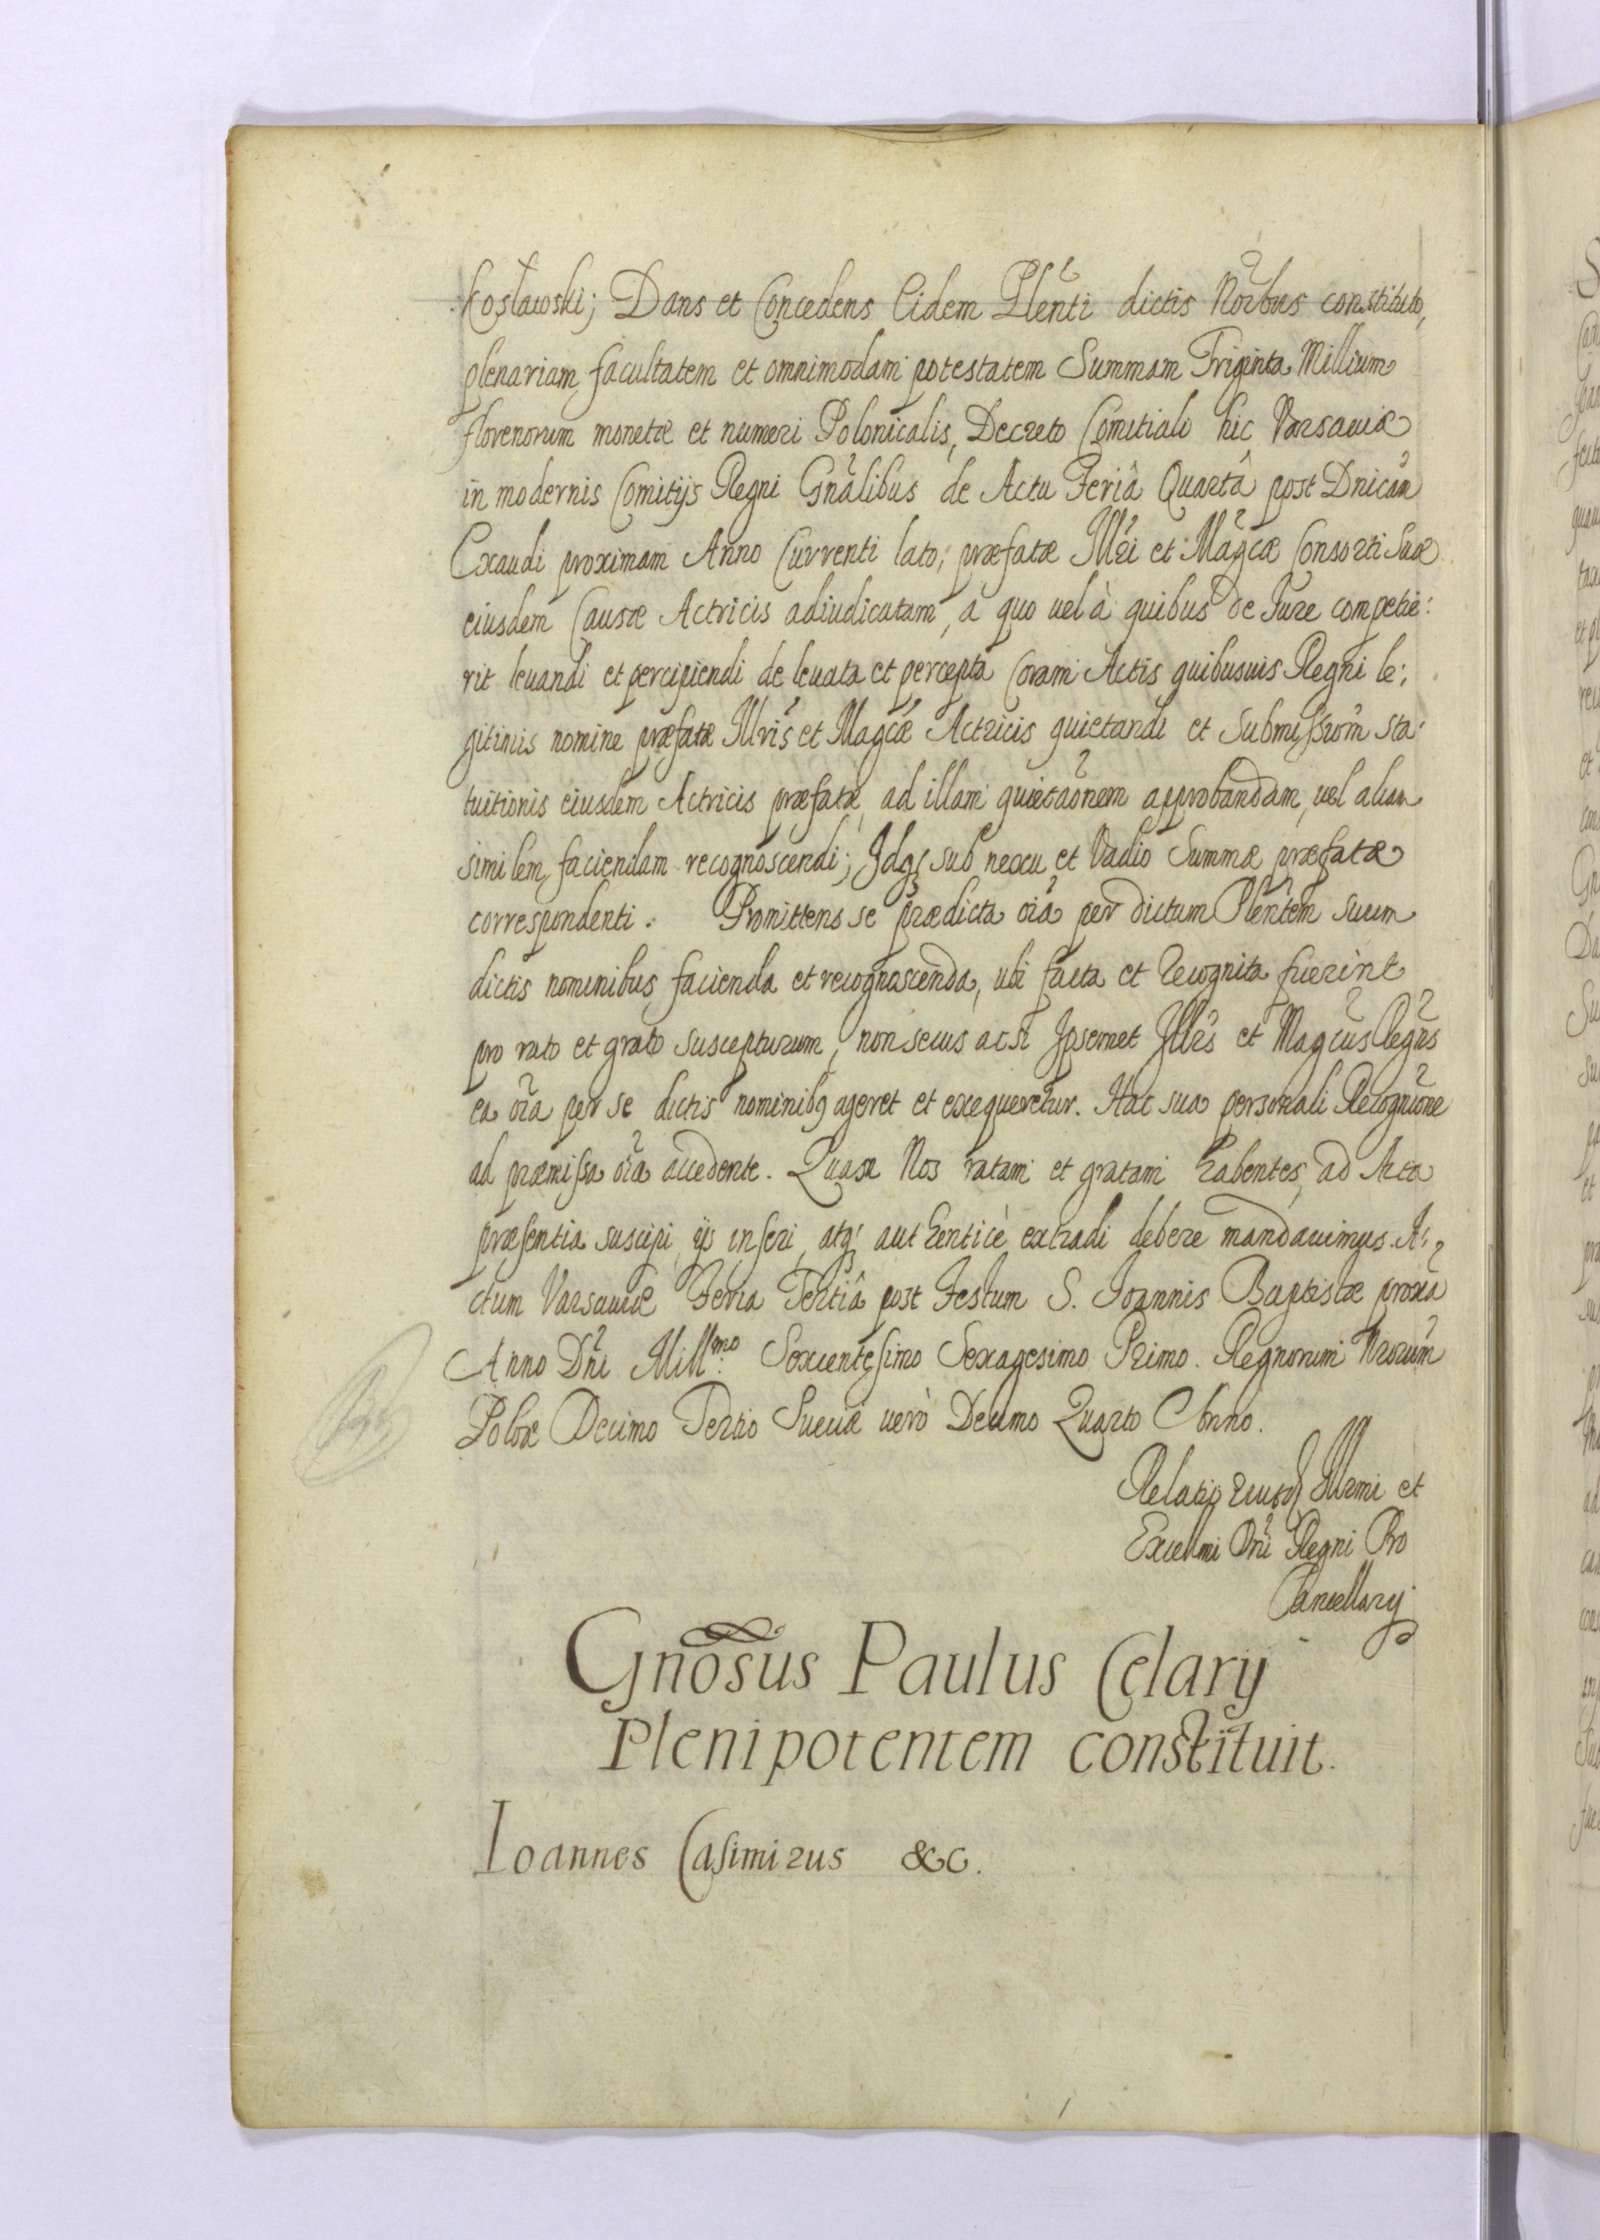 Kosławski; Dans et Concedens Eidem Plenti dictis Noibus constituto,
plenariam facultatem et omnimodam potestatem Summam Triginta Millium
florenorum monetæ et numeri Polonicalis, Decreto Comitiali hic Varsaviæ
in modernis Comitijs Regni Gnalibus de Actu Feriâ Quartâ post Dnicam
Exaudi proximam Anno Currenti lato; præfatæ Illri et Magcæ Consorti Suæ
eiusdem Causæ Actricis adiudicatam, a quo uel à quibus de Jure competie:
rit leuandi et percipiendi de leuata et percepta Coram Actis quibusuis Regni le:
gitimis nomine præfatæ Illris et Magcæ Actricis quietandi et Submissiom sta:
tuitionis eiusdem Actricis præfatæ, ad illam quietaonem approbandam, uel aliam
similem faciendam recognoscendi; Idq; sub nexu et Vadio Summæ præfatæ
correspondenti. Promittens se prædicta oia per dictum Plentem suum
dictis nominibus facienda et recognoscenda, ubi facta et recognita fuerint
pro rato et grato suscepturum, non secus ac si Ipsemet Illris et Magcus Regns
ea oia per se dictis nominibq ageret et exequeretur. Hac sua personali Recognione
ad præmissa oia accedente. Quam Nos ratam et gratam habentes, ad Acta
præsentia suscipi, ijs inseri, atq; authenticè extradi debere mandauimus. A:
ctum Varsauiæ Feria Tertiâ post Festum S. Ioannis Baptistæ proxa
Anno Dni Mill.mo Sexcentesimo Sexagesimo Primo. Regnorum Nrorum
Polon Decimo Tertio Sueciæ uerò Decimo Quarto Anno.
Relatio Eiusd Illmi et
Excellmi Dni Regni Pro
Cancellarij
Gnosus Paulus Celarij
Plenipotentem constituit.
Ioannes Casimirus &c.